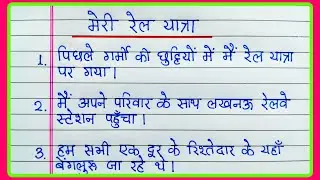 मेरी रेल यात्रा
1. पिछले गर्मी की छुट्टियों में मैं रेल यात्रा
पर गया।
2. मैं अपने परिवार के साथ लखनऊ रेलवे
स्टेशन पहुँचा।
3. हम सभी एक दूर के रिश्तेदार के यहाँ
बेंगलुरू जा रहे थे।